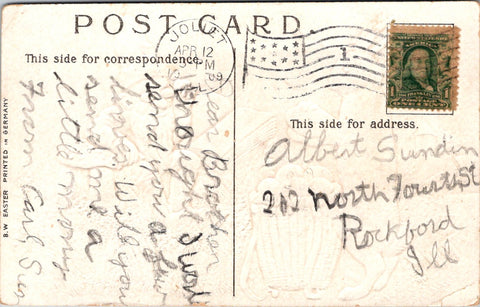 POST CARD.
JOLIET
APR 12
M
09
ILL.
1
1
This side for correspondence.
This side for address.
B.W. EASTER PRINTED IN GERMANY
Dear Brother
I thought I wod
send you a few
lines. Will you
send me a
little mony
From Carl, Sun
Albert Sundin
212 North Fourth St
Rockford
Ill